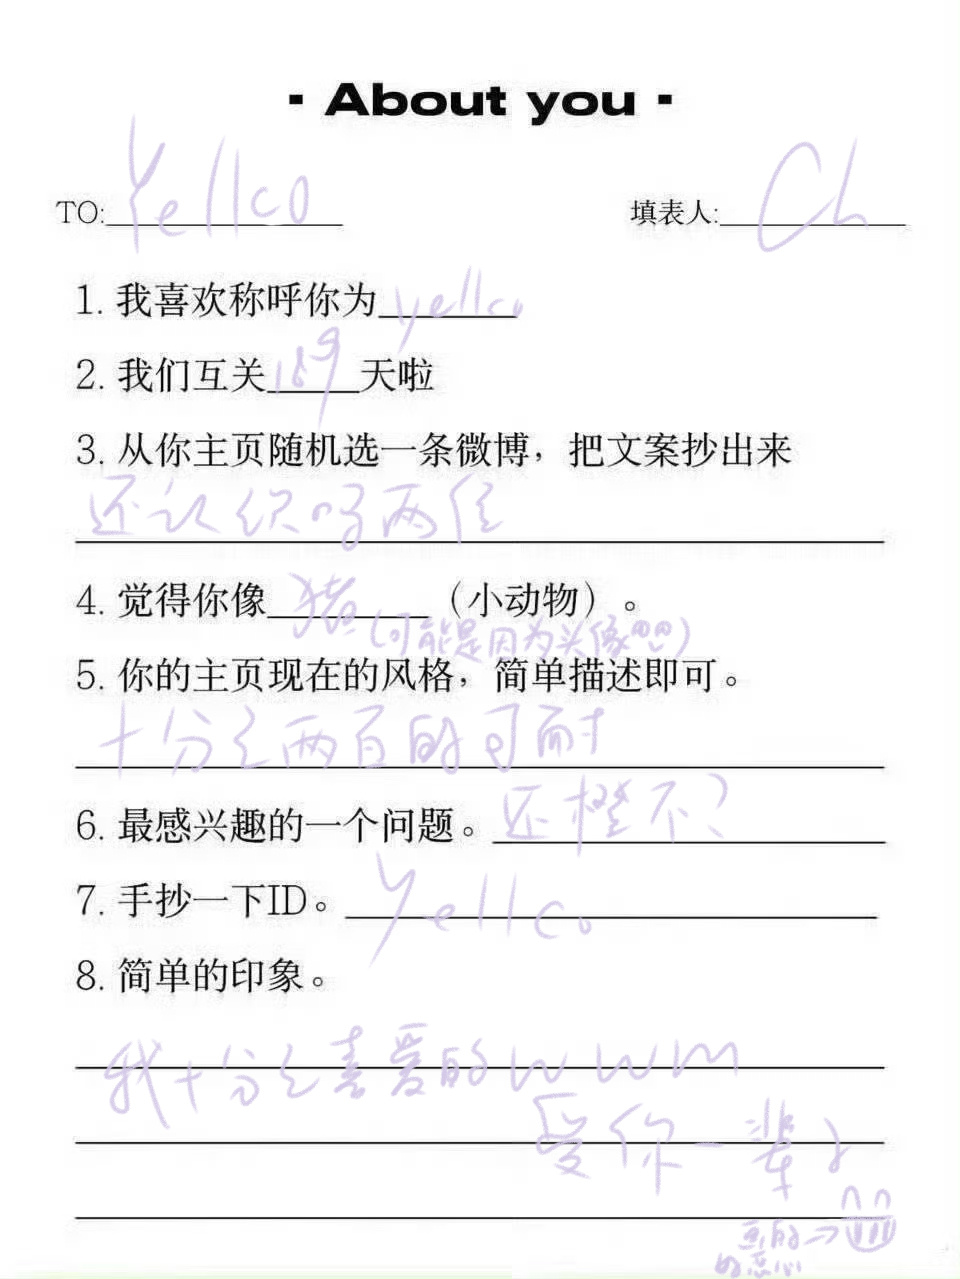 - About you -
TO: Yellco 填表人: Ch
1. 我喜欢称呼你为 yellco
2. 我们互关 169 天啦
3. 从你主页随机选一条微博，把文案抄出来
还认识吗两位
4. 觉得你像 猪 （小动物）。
(可能是因为头像
5. 你的主页现在的风格，简单描述即可。
十分之两百的可耐
6. 最感兴趣的一个问题。 还橙不？
7. 手抄一下ID。 Yellco
8. 简单的印象。
我十分之喜爱的wwm
爱你一辈子
画的
好恶心